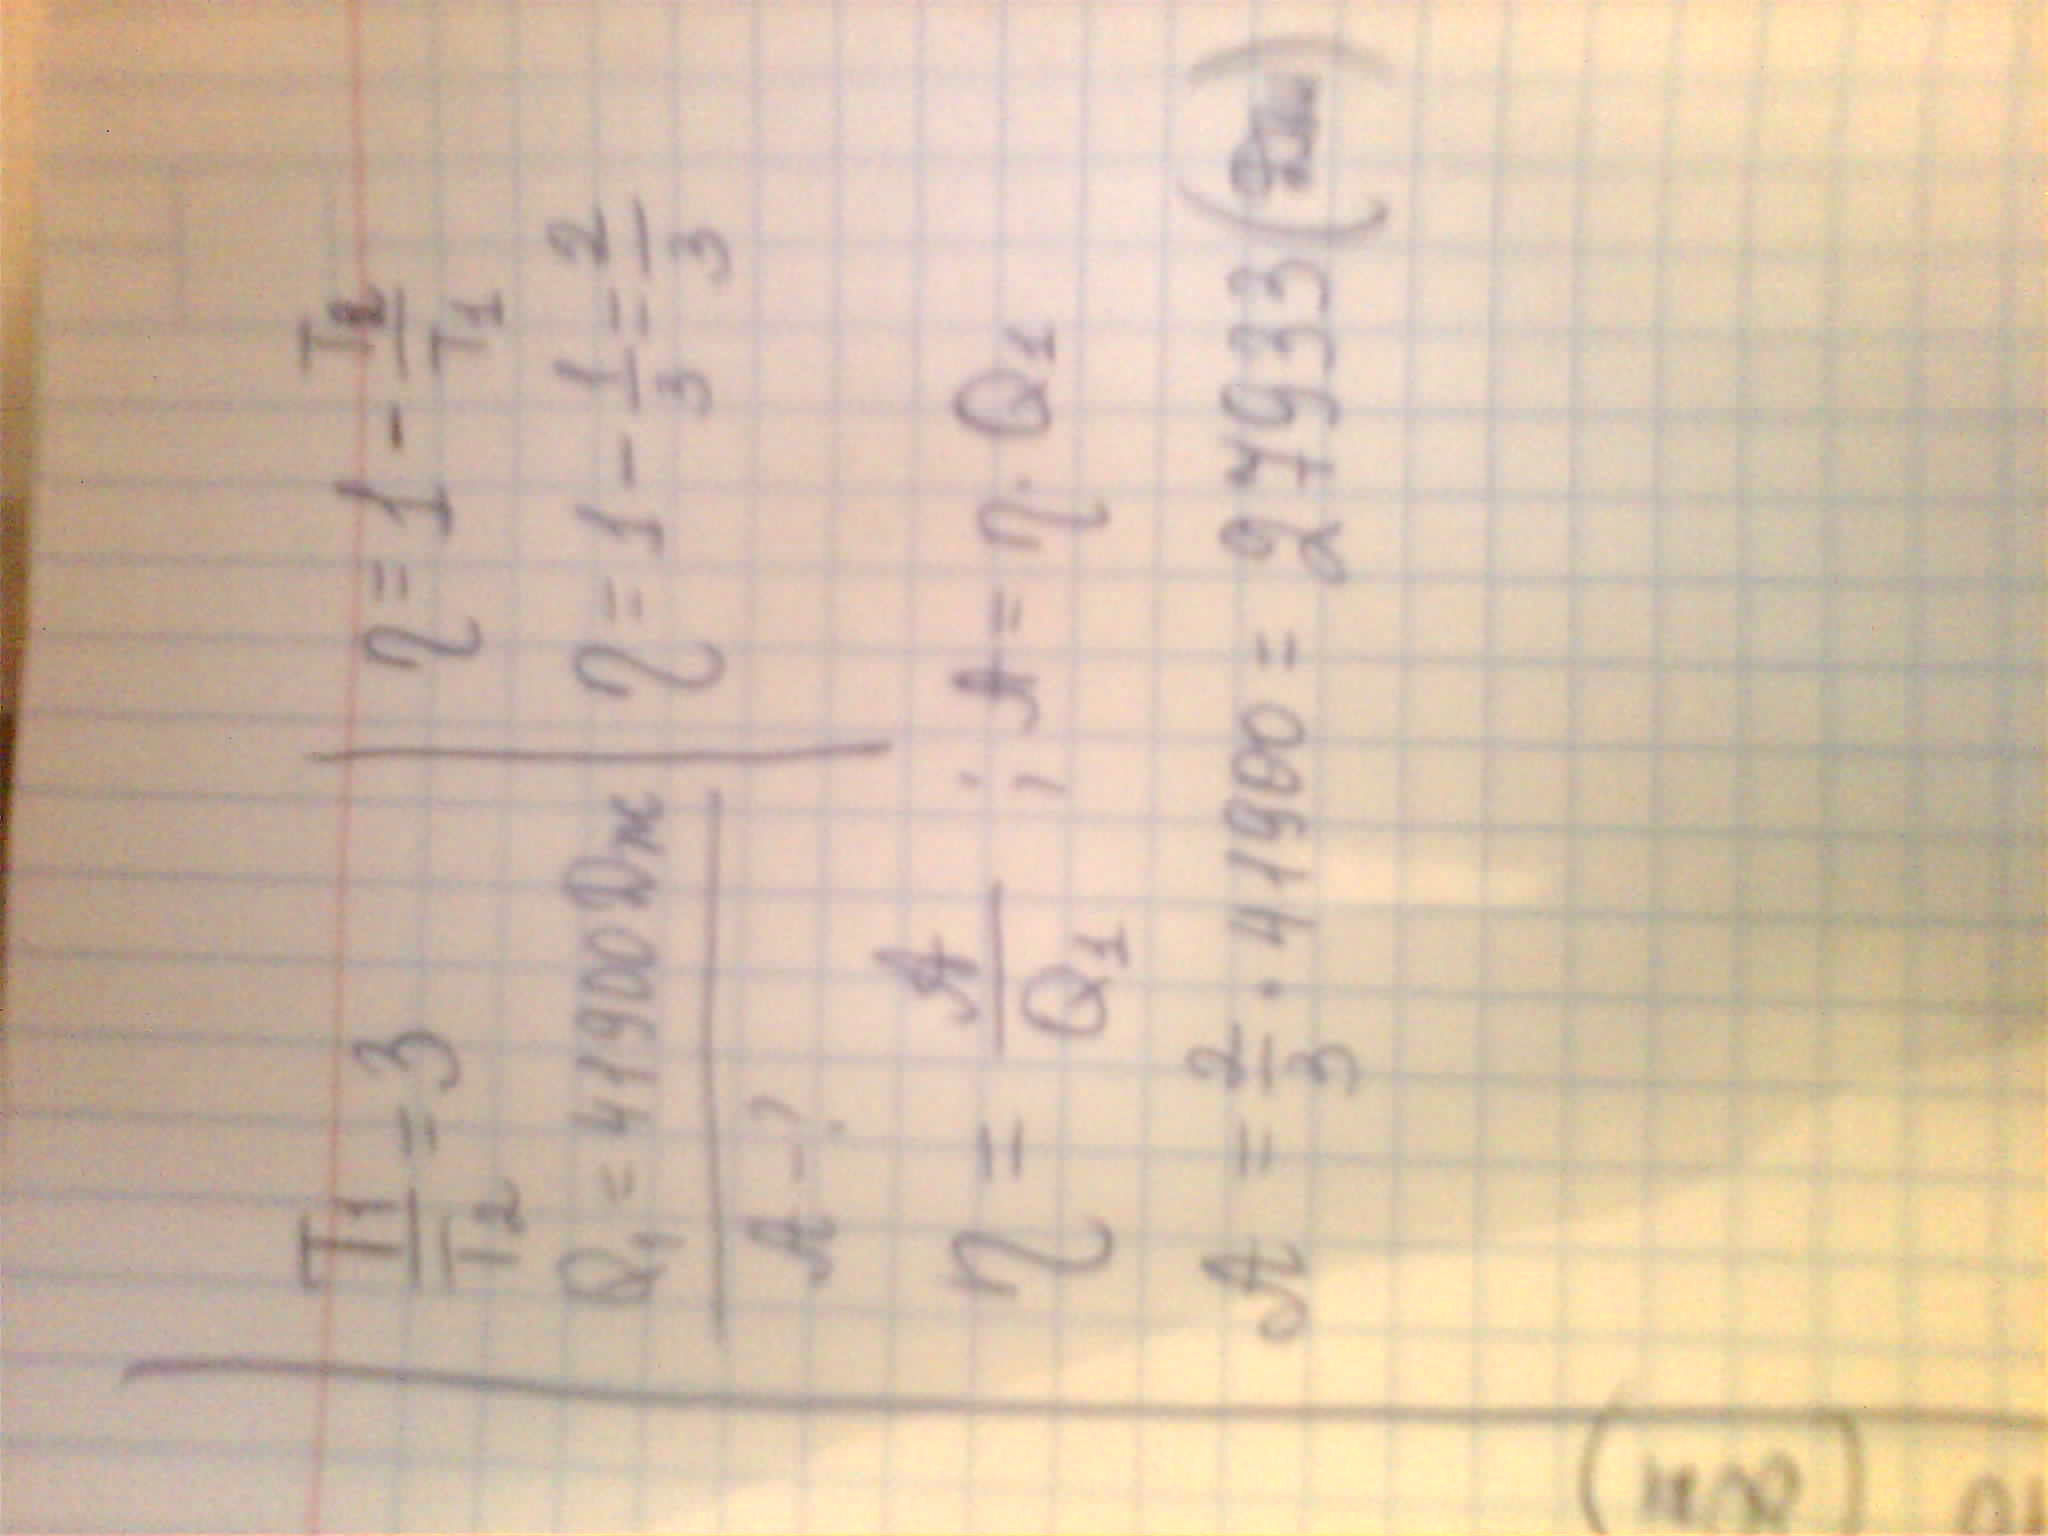 T1/T2 = 3
Q1 = 41900 Дж
A - ?
η = 1 - T2/T1
η = 1 - 1/3 = 2/3
η = A/Q1 ; A = η · Q1
A = 2/3 · 41900 = 27933 (Дж)